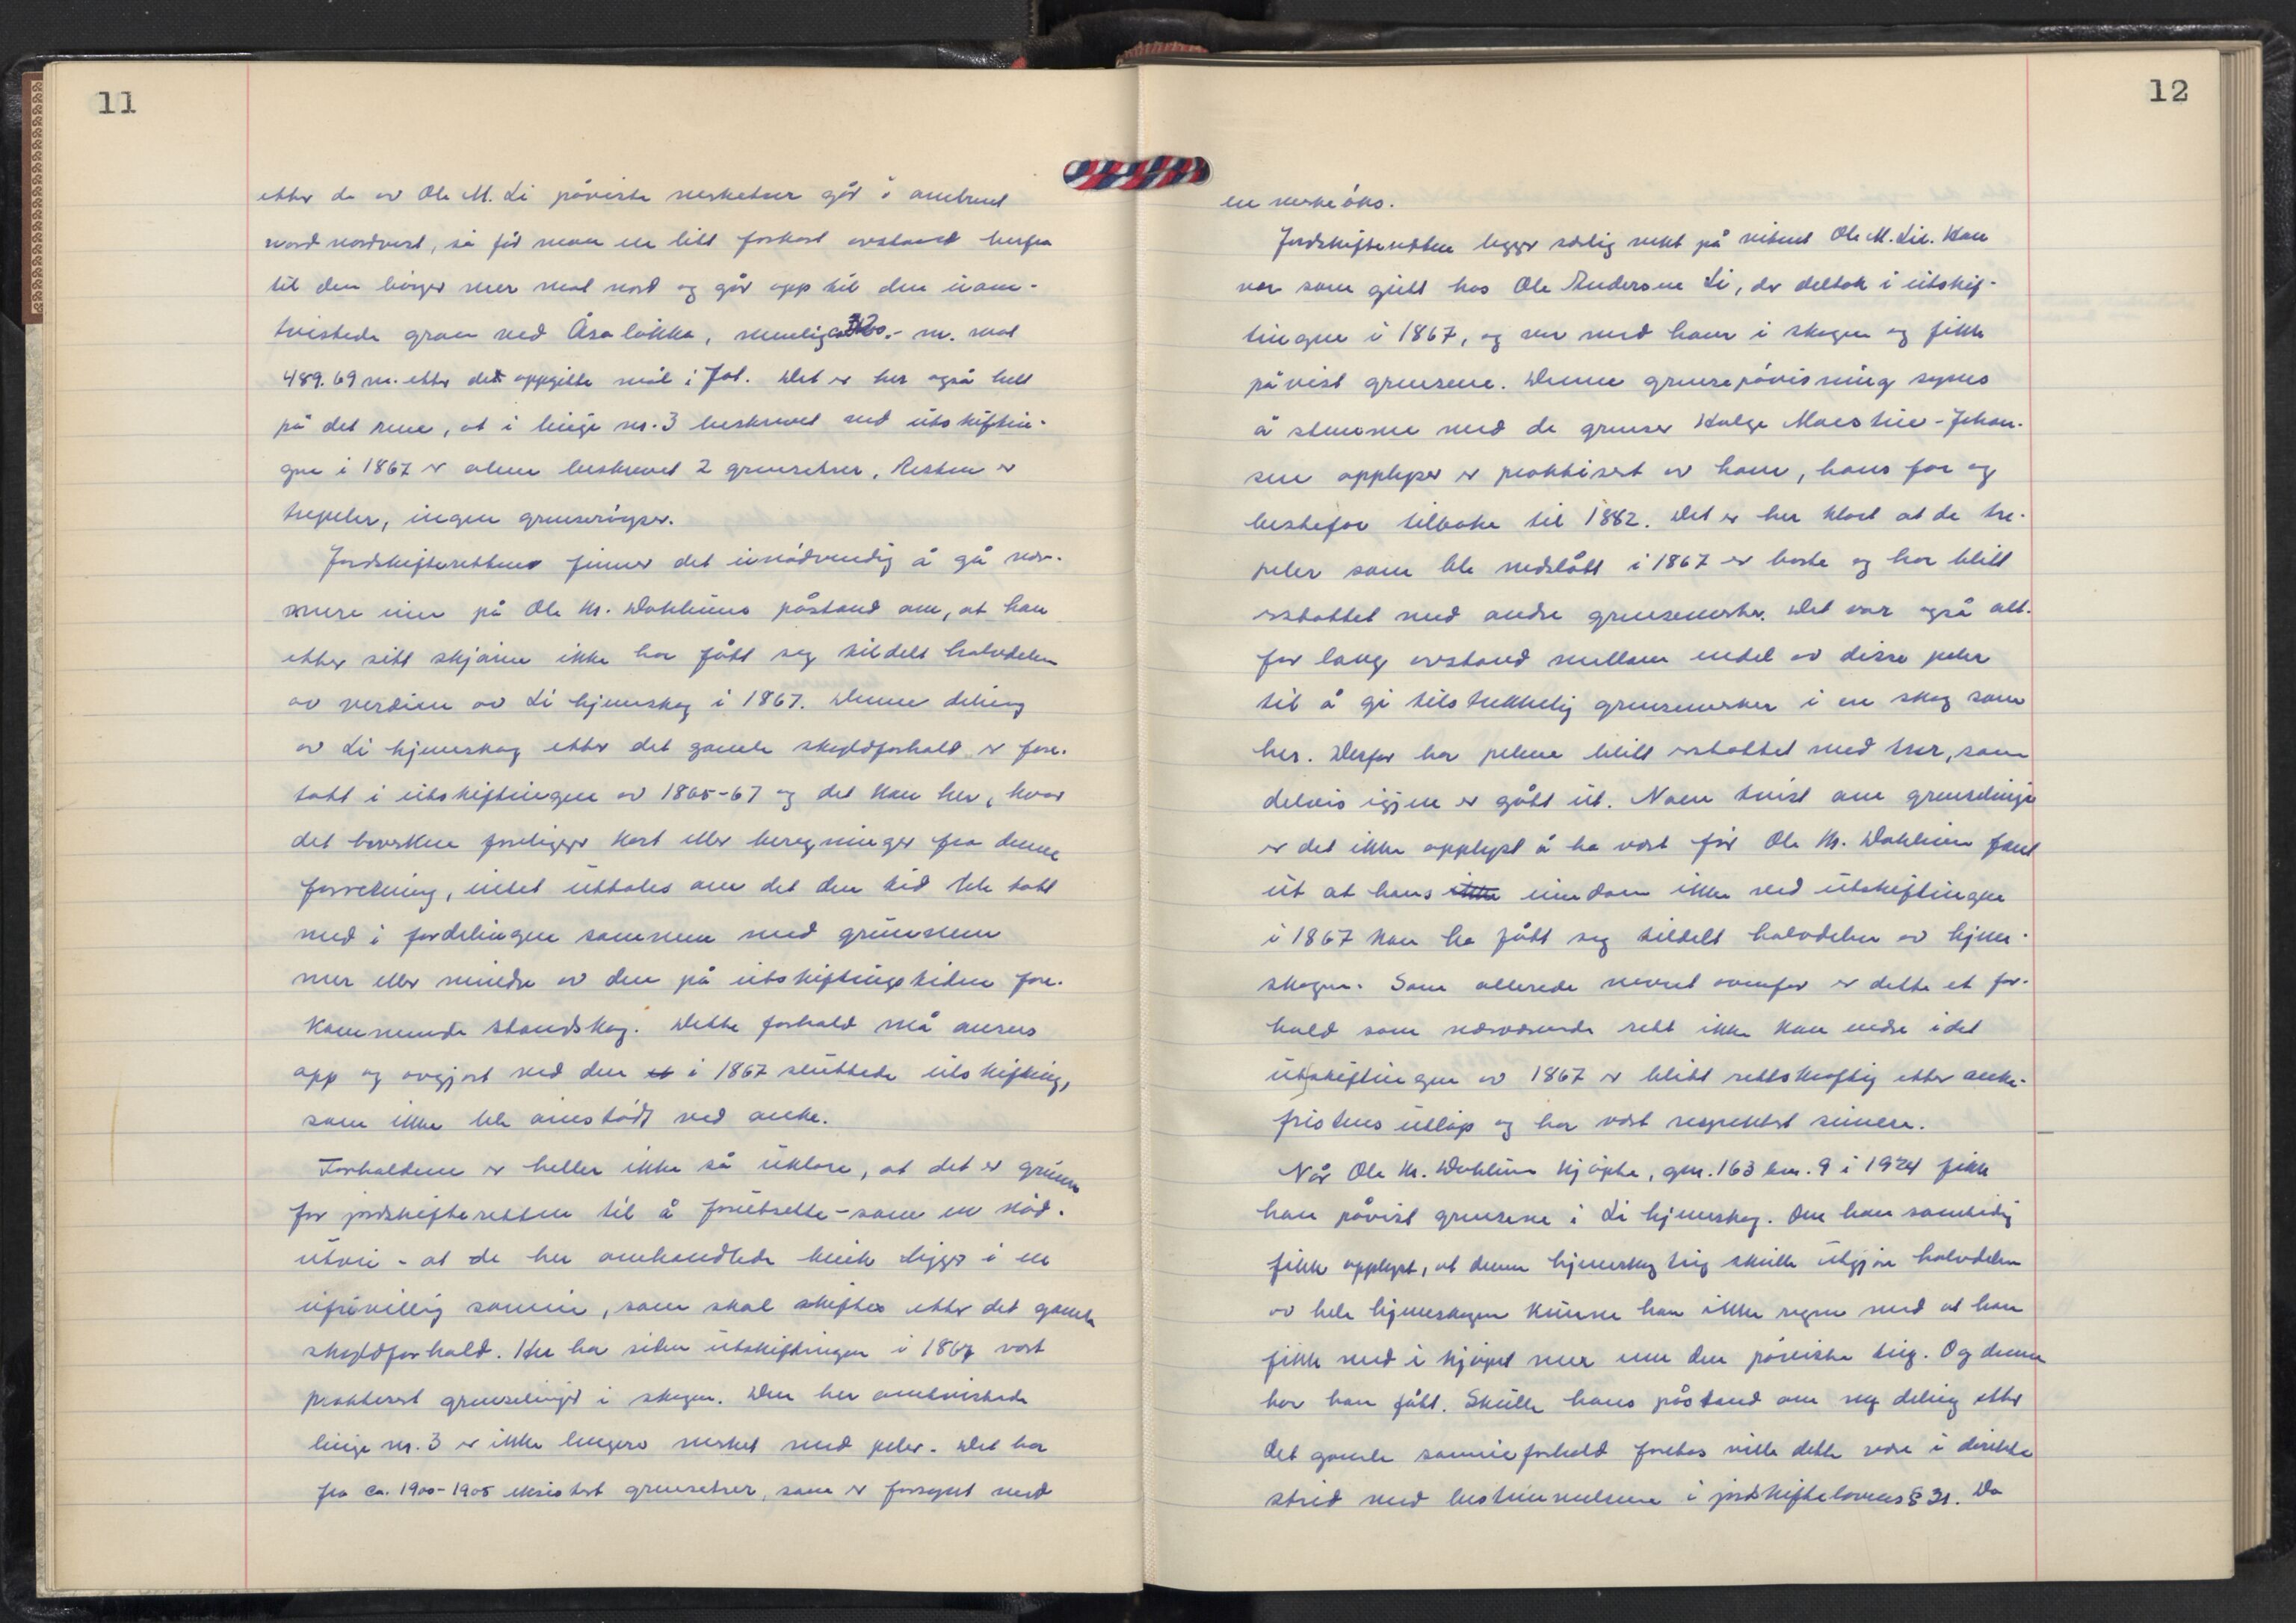 11
etter de av Ole M. Li påviste merketrær går i omtrent
nord nordvest, så får man en litt forkort avstand herfra
til den bøyer mer mot nord og går opp til den uom-
tvistede gran ved Åsaløkka, nemlig ca 320.- m. mot
489.69 m. etter det oppgitte mål i Jol. Det er her også helt
på det rene, at i linje nr. 3 beskrevet ved utskiftin-
gen i 1867 er alene beskrevet 2 grensetrær. Resten er
trepeler, ingen grenserøyser.
Jordskifteretten finner det unødvendig å gå nær-
mere inn på Ole Kr. Dokkens påstand om, at han
etter sitt skjønn ikke har fått seg tildelt halvdelen
av verdien av Li hjemskog i 1867. Denne deling
av Li hjemskog etter det gamle skyldforhold er fore-
tatt i utskiftingen av 1865-67 og det kan her, hvor
det hverken foreligger kart eller beregninger fra denne
forretning, intet uttales om det den tid ble tatt
med i fordelingen sammen med grunnen
mer eller mindre av den på utskiftingstiden fore-
kommende standskog. Dette forhold må anses
opp og avgjort ved den i 1867 sluttede utskifting,
som ikke ble omstødt ved anke.
Forholdene er heller ikke så uklare, at det er grunn
for jordskifteretten til å forutsette - som en nød-
utvei - at de her omhandlede bruk ligger i en
ufrivillig sameie, som skal skiftes etter det gamle
skyldforhold. Her har siden utskiftingen i 1867 vært
praktisert grenselinjer i skogen. Den her omtvistede
linje nr. 3 er ikke lengere merket med peler. Det har
fra ca. 1900-1905 eksistert grensetrær, som er forsynt med
12
en merkeøks.
Jordskifteretten legger særlig vekt på vitnet Ole M. Lie. Han
var som gutt hos Ole Andersen Li, der deltok i utskif-
tingen i 1867, og var med ham i skogen og fikk
påvist grensene. Denne grensepåvisning synes
å stemme med de grenser Helge Moestue-Johan-
sen opplyser er praktisert av ham, hans far og
bestefar tilbake til 1882. Det er her klart at de tre-
peler som ble nedslått i 1867 er borte og har blitt
erstattet med andre grensemerker. Det var også alt-
for lang avstand mellom endel av disse peler
til å gi tilstrekkelig grensemerker i en skog som
her. Derfor har pelene blitt erstattet med trær, som
delvis igjen er gått ut. Noen tvist om grenselinje
er det ikke opplyst å ha vært før Ole Kr. Dokken fant
ut at hans ikke eiendom ikke ved utskiftingen
i 1867 kan ha fått seg tildelt halvdelen av hjem-
skogen. Som allerede nevnt ovenfor er dette et for-
hold som nærværende rett ikke kan endre idet
utskiftingen av 1867 er blitt rettskraftig etter anke-
fristens utløp og har vært respektert siden.
Når Ole Kr. Dokken kjøpte, gnr. 163 bnr. 9 i 1924 fikk
han påvist grensene i Li hjemskog. Om han samtidig
fikk opplyst, at denne hjemskogteig skulle utgjøre halvdelen
av hele hjemskogen kunne han ikke regne med at han
fikk med i kjøpet mer enn den påviste teig. Og denne
har han fått. Skulle hans påstand om ny deling etter
det gamle sameieforhold foretas ville dette være i direkte
strid med bestemmelsene i jordskiftelovens § 31. Da